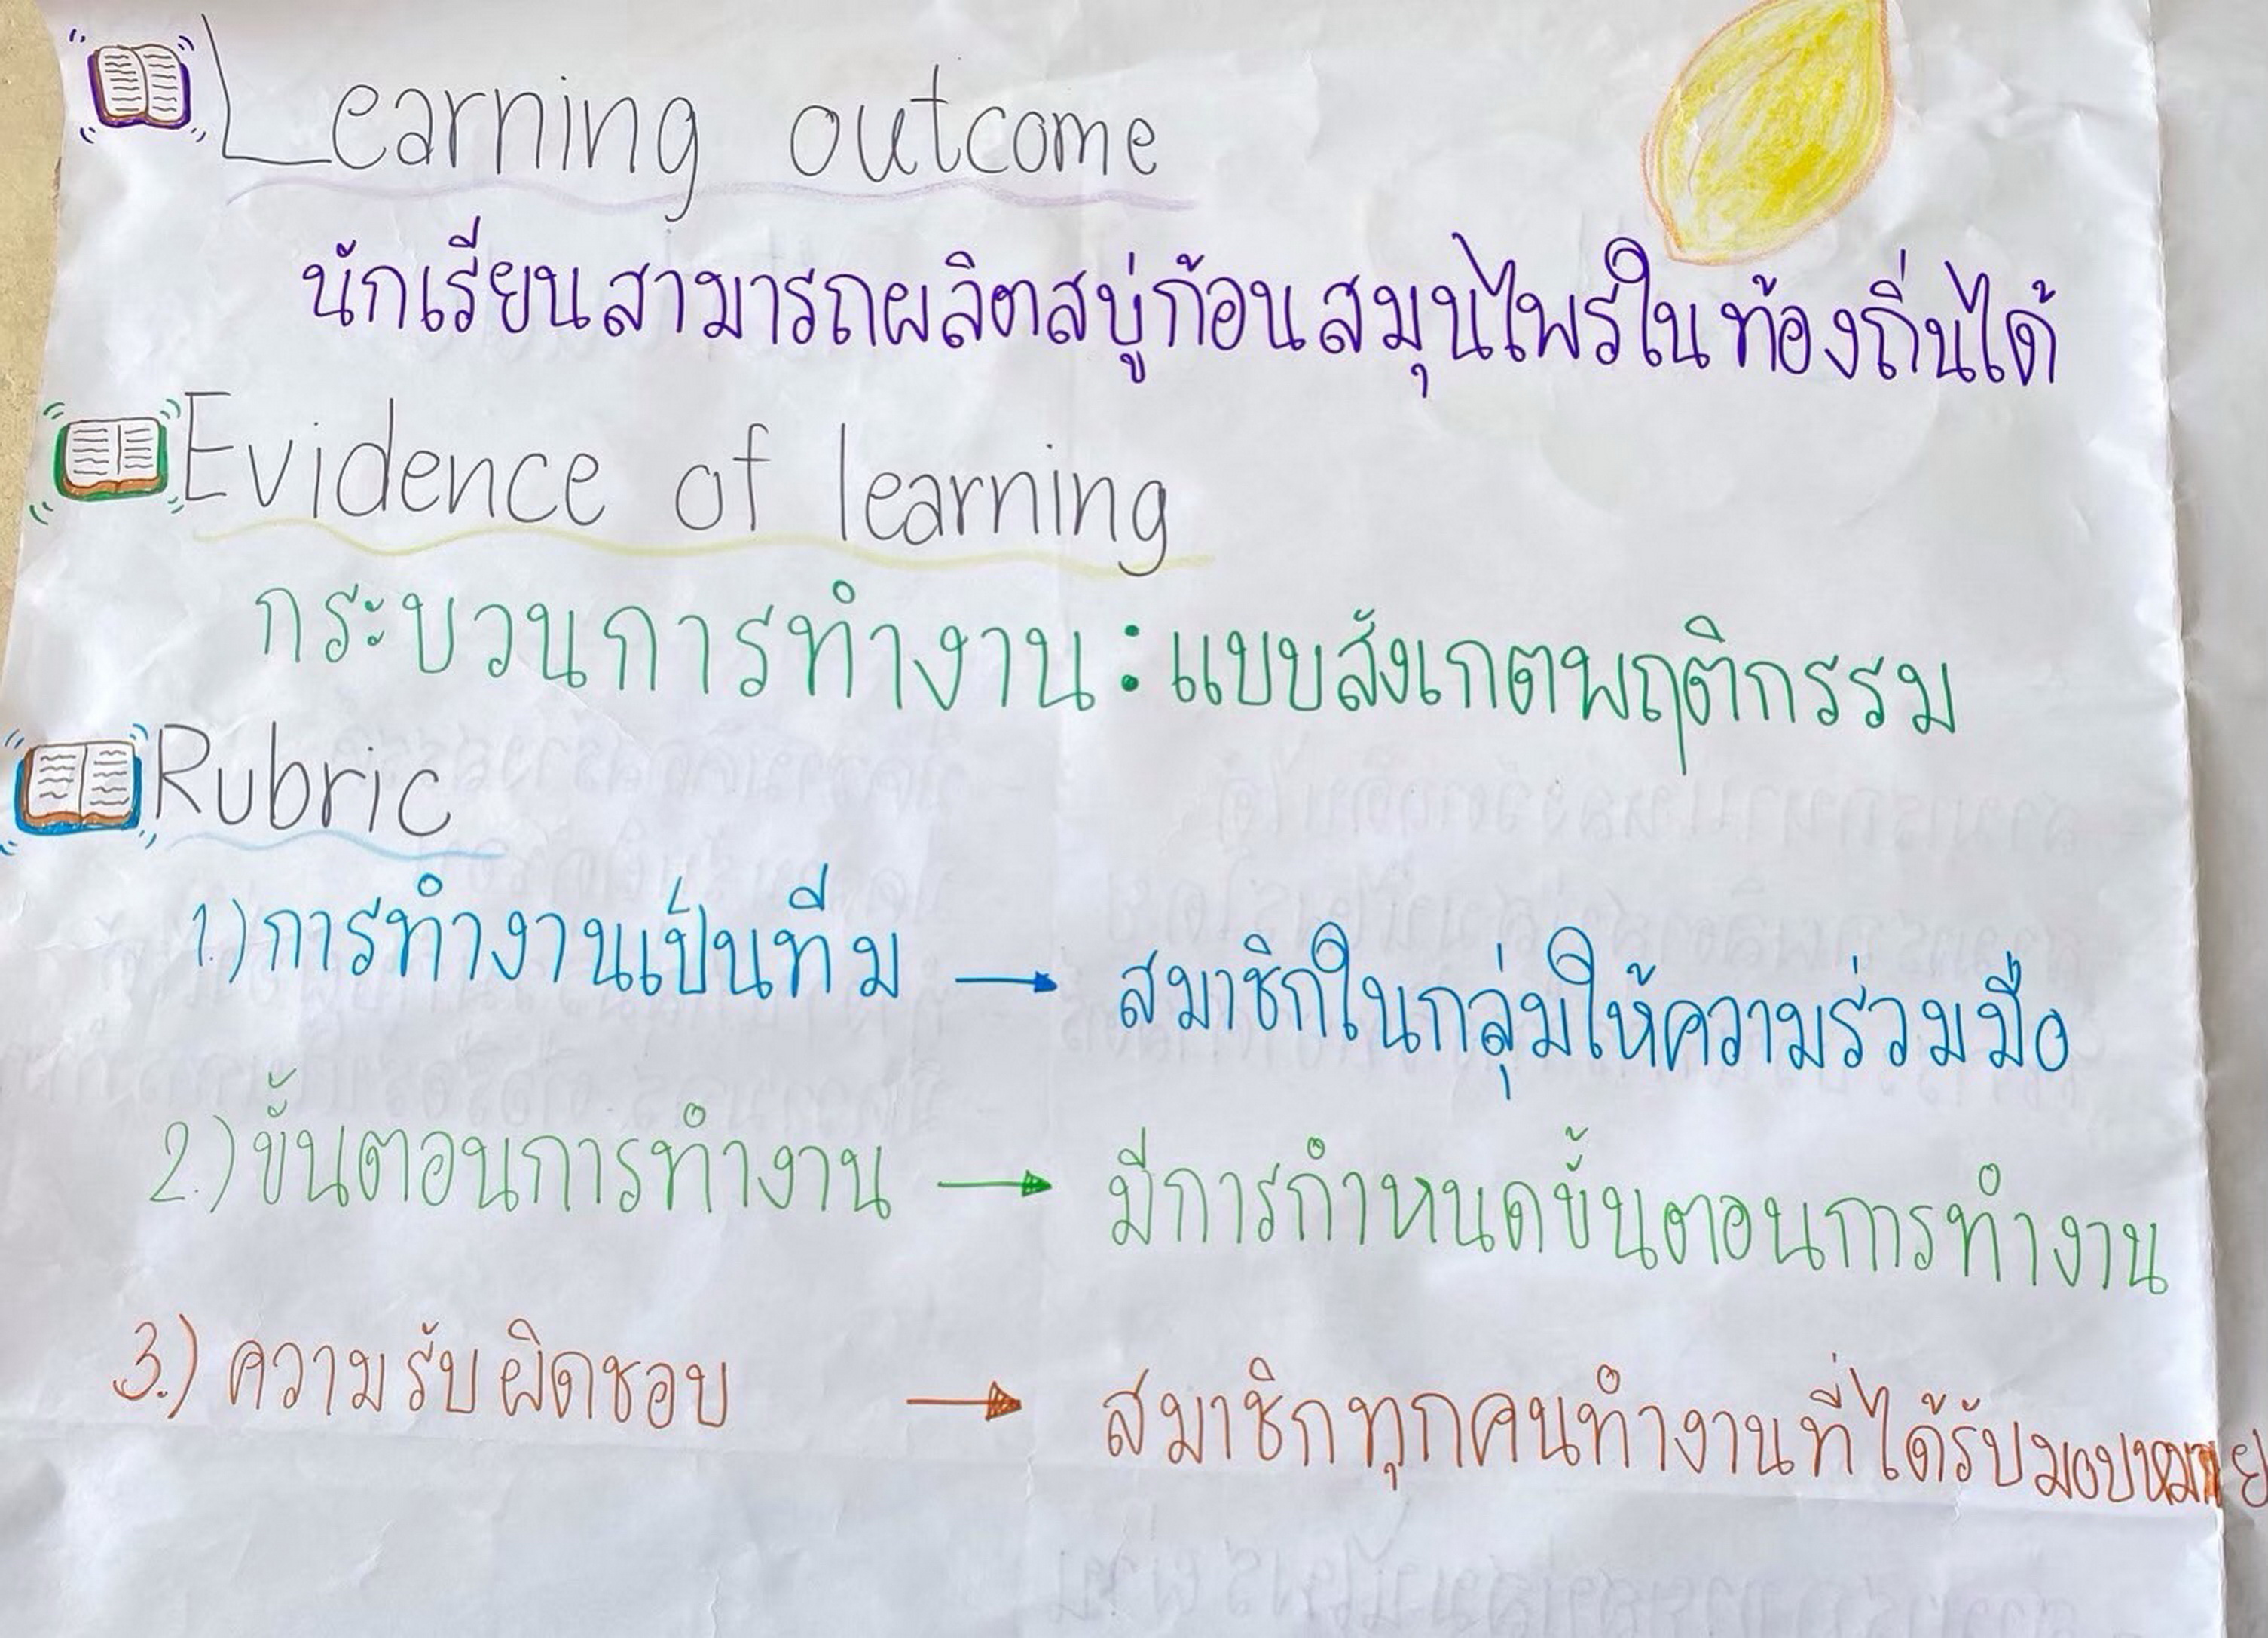 Learning outcome
นักเรียนสามารถผลิตสบู่ก้อนสมุนไพรในท้องถิ่นได้
Evidence of learning
กระบวนการทำงาน : แบบสังเกตพฤติกรรม
Rubric
1.) การทำงานเป็นทีม → สมาชิกในกลุ่มให้ความร่วมมือ
2.) ขั้นตอนการทำงาน → มีการกำหนดขั้นตอนการทำงาน
3.) ความรับผิดชอบ → สมาชิกทุกคนทำงานที่ได้รับมอบหมาย